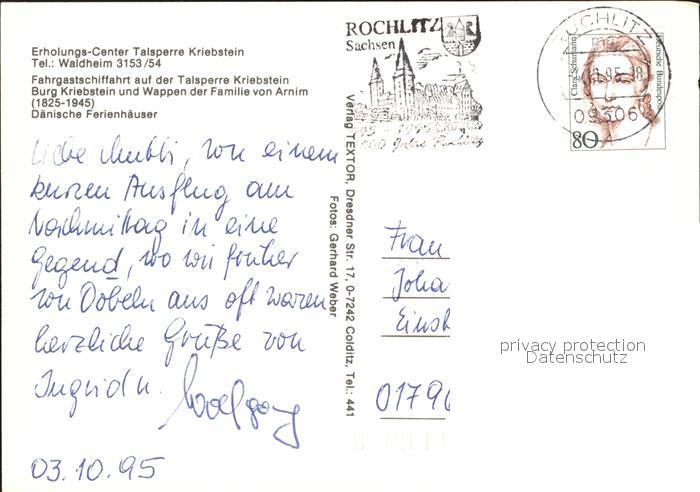 Erholungs-Center Talsperre Kriebstein
Tel.: Waldheim 3153/54
Fahrgastschiffahrt auf der Talsperre Kriebstein
Burg Kriebstein und Wappen der Familie von Arnim
(1825-1945)
Dänische Ferienhäuser
Liebe Mutti, von einem
kurzen Ausflug am
Nachmittag in eine
Gegend, wo wir früher
von Döbeln aus oft waren
herzliche Grüße von
Ingrid u. Wolfgang
03.10.95
Verlag TEXTOR, Dresdner Str. 17, 0-7242 Colditz, Tel.: 441
Fotos: Gerhard Weber
ROCHLITZ
Sachsen
ROCHLITZ
09306
Clara Schumann
Deutsche Bundespost
80
Frau
Joha
Einst
01796
privacy protection
Datenschutz